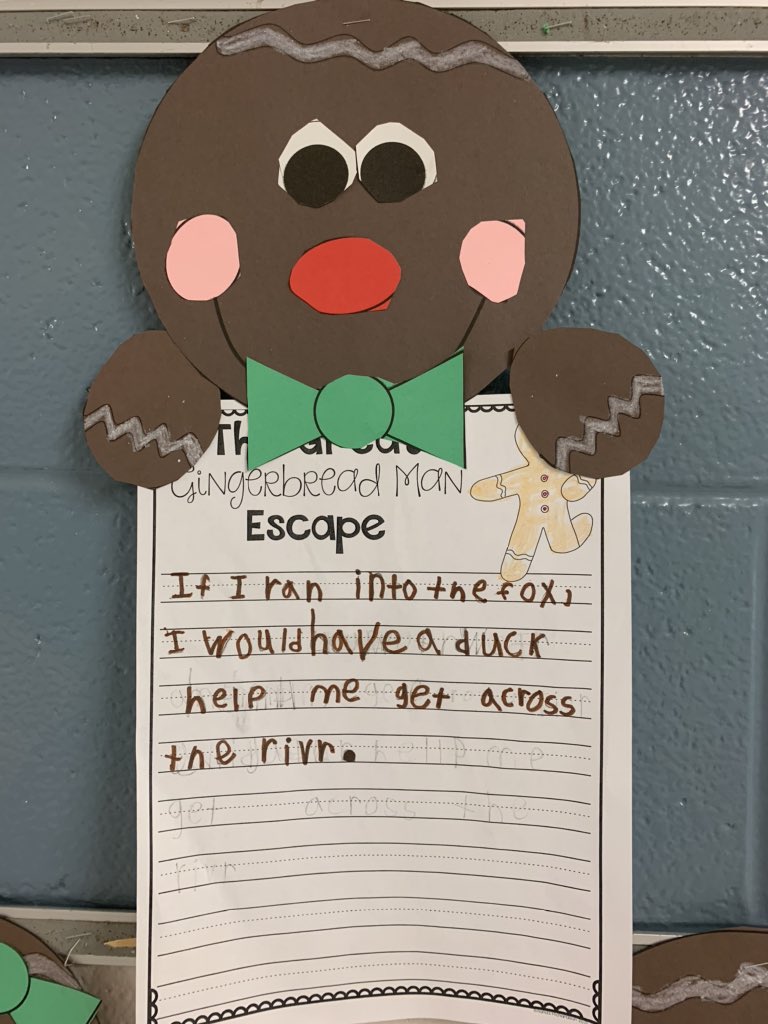 The Great
Gingerbread Man
Escape
If I ran into the fox,
I would have a duck
help me get across
the rivr.
help me
get across the
rivr